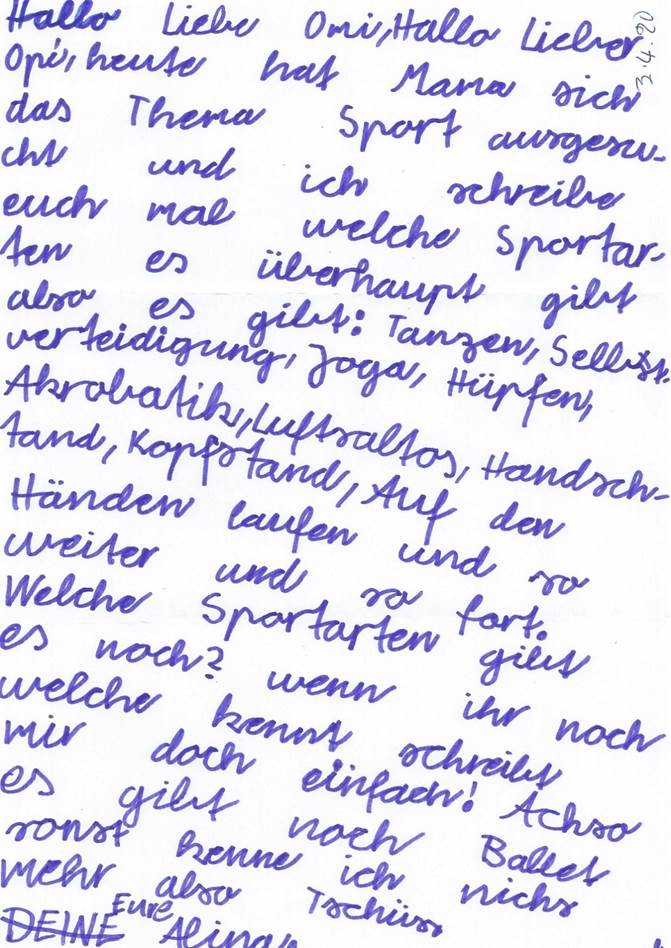 Hallo Liebe Omi, Hallo Lieber
3.4.20
Opi, heute hat Mama sich
das Thema Sport ausgesu-
cht und ich schreibe
euch mal welche Sportar-
ten es überhaupt gibt
also es gibt: Tanzen, Selbst-
verteidigung, Joga, Hüpfen,
Akrobatik, Luftsaltos, Handsch-
tand, Kopfstand, Auf den
Händen laufen und so
weiter und so fort.
Welche Sportarten gibt
es noch? wenn ihr noch
welche kennt schreibt
mir doch einfach! Achso
es gibt noch Ballet
sonst kenne ich nichs
mehr also Tschüss
Eure
DEINE Alina